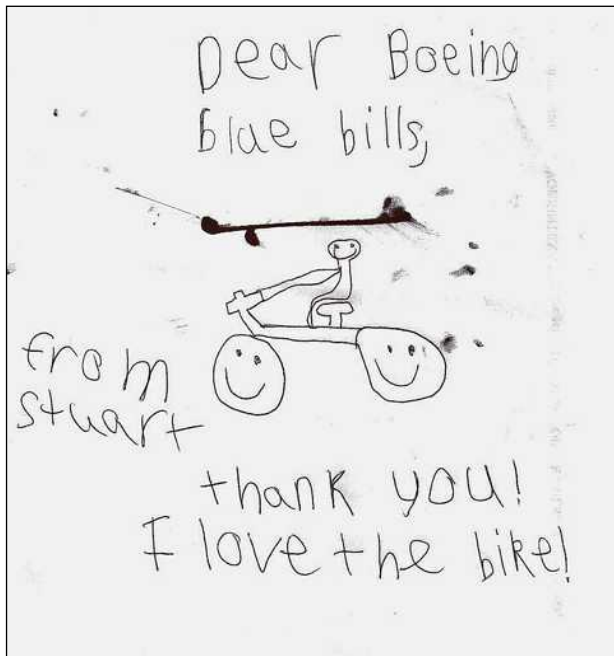 Dear Boeing
blue bills,
from
stuart
thank you!
I love the bike!